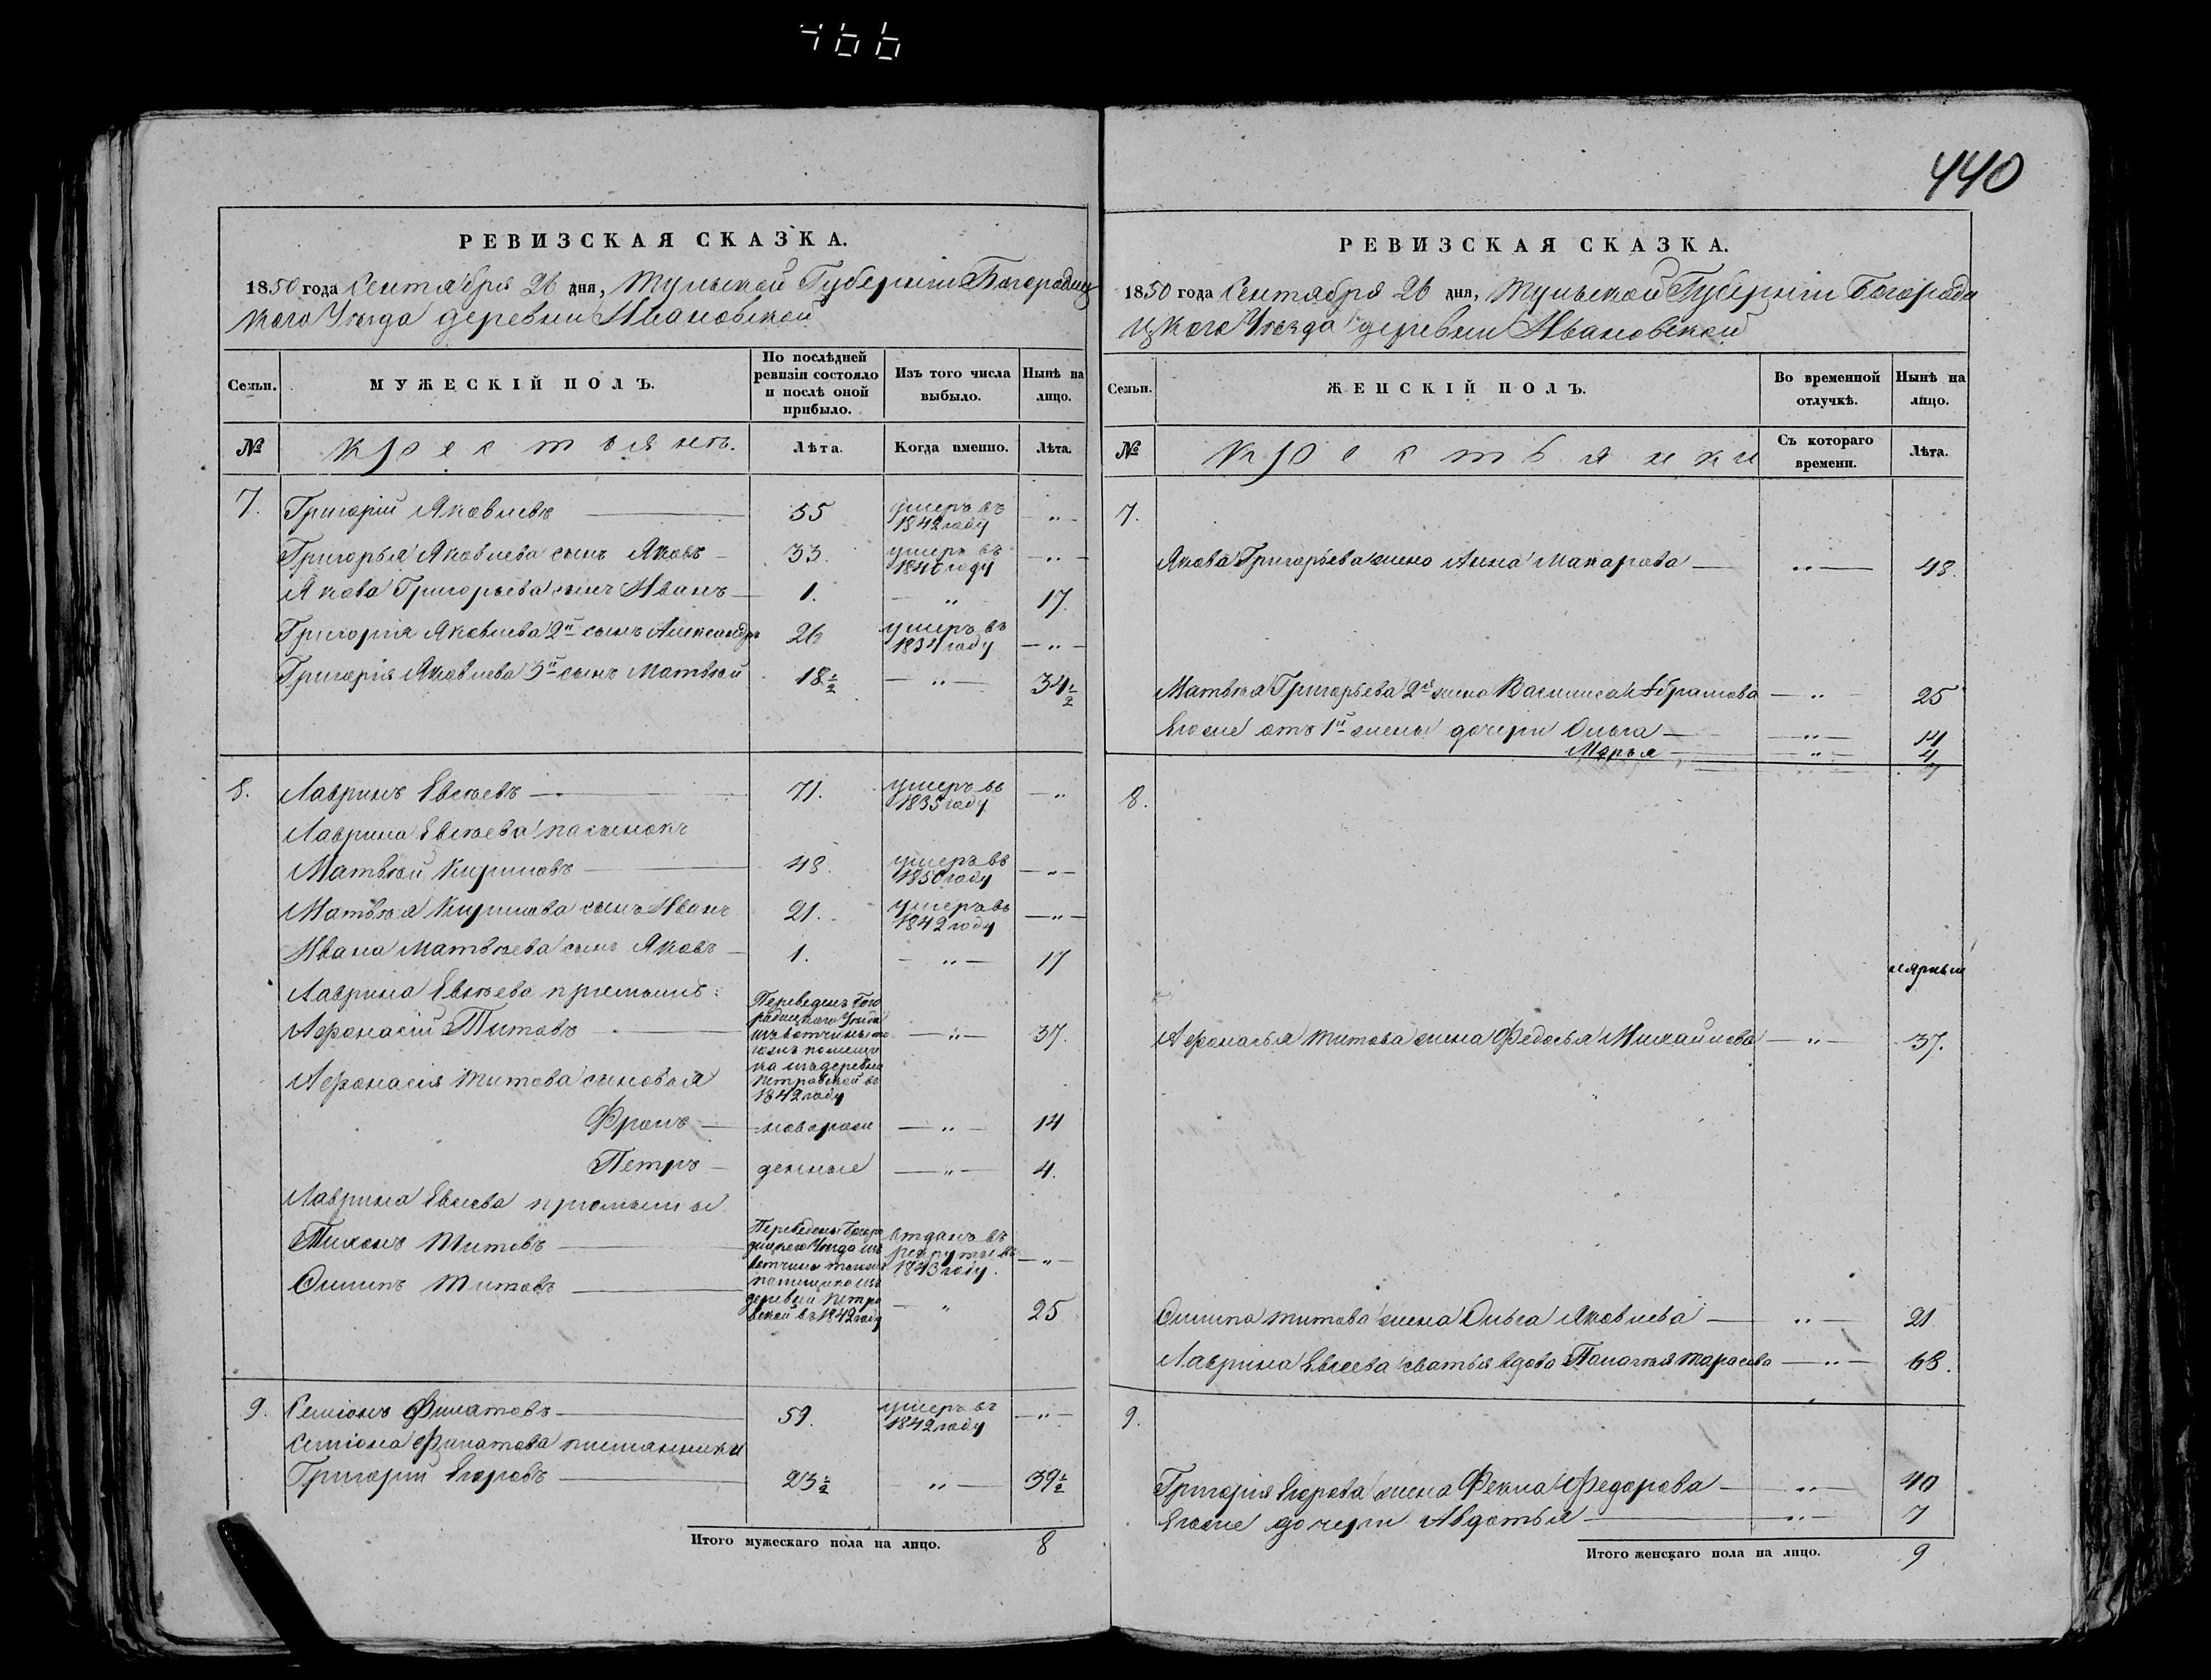 466
440
РЕВИЗСКАЯ СКАЗКА.
1850 года Сентября 26 дня, Тульской Губерніи Богородиц
каго Уѣзда деревни Ивановской
Семьи.
МУЖЕСКІЙ ПОЛЪ.
По послѣдней ревизіи состояло и послѣ оной прибыло.
Изъ того числа выбыло.
Нынѣ на лицо.
№
Крестьянъ.
Лѣта.
Когда именно.
Лѣта.
7. Григорій Яковлевъ 55 умеръ въ 1842 году „
Григорья Яковлева сынъ Яковъ 33. умеръ въ году „
Якова Григорьева сынъ Иванъ 1. „ 17.
Григорія Яковлева 2й сынъ Александръ 26 умеръ въ 1834 году „
Григорія Яковлева 3й сынъ Матвѣй 18½ „ 34½
8. Лавринъ Евсѣевъ 71. умеръ въ 1835 году „
Лаврина Евсѣева пасынокъ
Матвѣй Кириловъ 48. умеръ въ 1850 году „
Матвѣя Кирилова сынъ Иванъ 21. умеръ въ 1842 году „
Ивана Матвѣева сынъ Яковъ 1. „ 17
Лаврина Евсѣева
Афонасій Титовъ Переведенъ Бого
радицкаго Уѣзда
изъ вотчины то
гожъ помещи
ка изъ деревни
Петровской въ
1842 году „ 37.
Афонасія Титова сыновья
Фролъ новорож „ 14
Петръ денные „ 4.
Лаврина Евсева
Тихонъ Титовъ Переведены Богоро
дицкаго Уѣзда изъ
вотчины тогожъ
помещика изъ
деревни Петро
вской въ 1842 году отданъ въ рекруты въ 1843 году. „
Осипъ Титовъ „ 25
9. Семіонъ Филатовъ 59. умеръ въ 1842 году „
Семіона Филатова племянники
Григорій Егоровъ 23½ „ 39½
Итого мужескаго пола на лицо. 8
РЕВИЗСКАЯ СКАЗКА.
1850 года Сентября 26 дня, Тульской Губерніи Богороди
цкаго Уѣзда деревни Ивановской
Семьи.
ЖЕНСКІЙ ПОЛЪ.
Во временной отлучкѣ.
Нынѣ на лицо.
№
Крестьянки
Съ котораго времени.
Лѣта.
7.
Якова Григорьева жена Анна Макарова „ 48.
Матвѣя Григорьева 2я жена Василиса Абрамова „ 25
Егоже отъ 1й жены дочери Ольга „ 14
Марья „ 4
8.
Афонасья Титова жена Федосья Михайлова „ 37.
Осипа Титова жена Ольга Яковлева „ 21.
Лаврина Евсеева сватья вдова Палагея Тарасова „ 68.
9.
Григорія Егорова жена Фекла Федорова „ 40
Егоже дочери Авдотья „ 7
Итого женскаго пола на лицо. 9